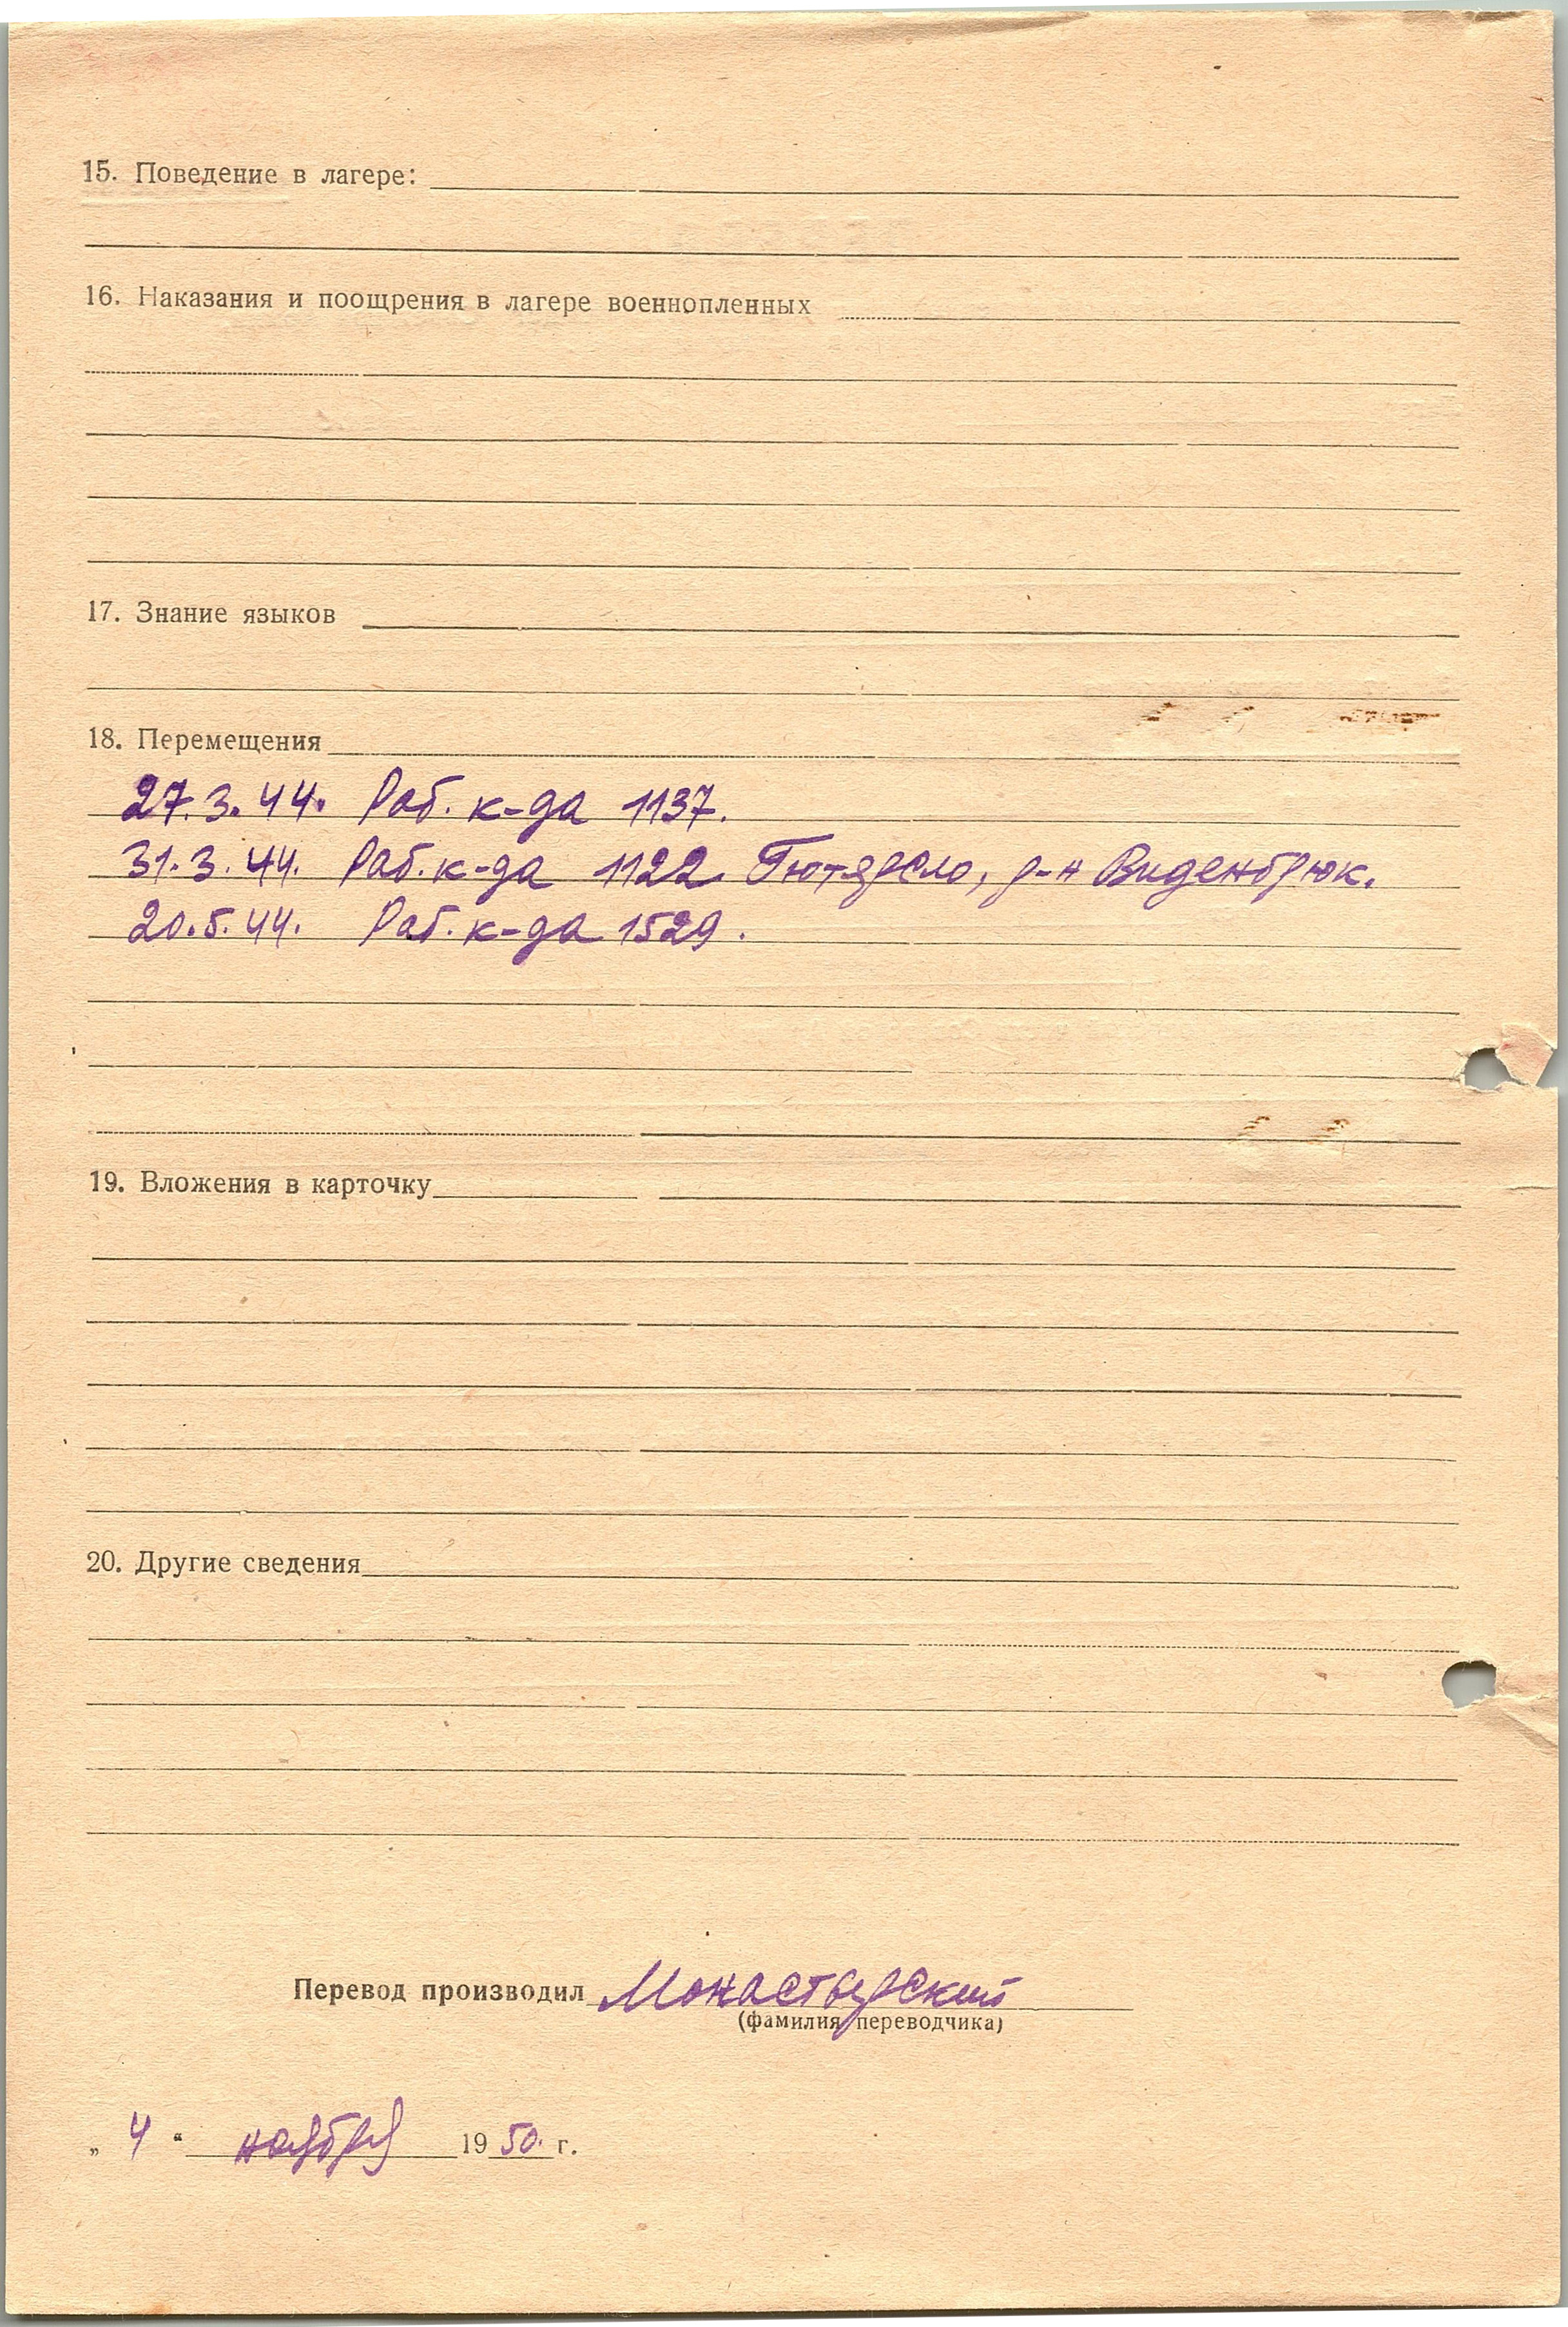 15. Поведение в лагере:
16. Наказания и поощрения в лагере военнопленных
17. Знание языков
18. Перемещения
27.3.44. Раб. к-да 1137.
31.3.44. Раб. к-да 1122 Гютерсло, р-н Виденбрюк.
20.5.44. Раб. к-да 1529.
19. Вложения в карточку
20. Другие сведения
Перевод производил Монастырский
(фамилия переводчика)
„ 4 “ ноября 1950. г.